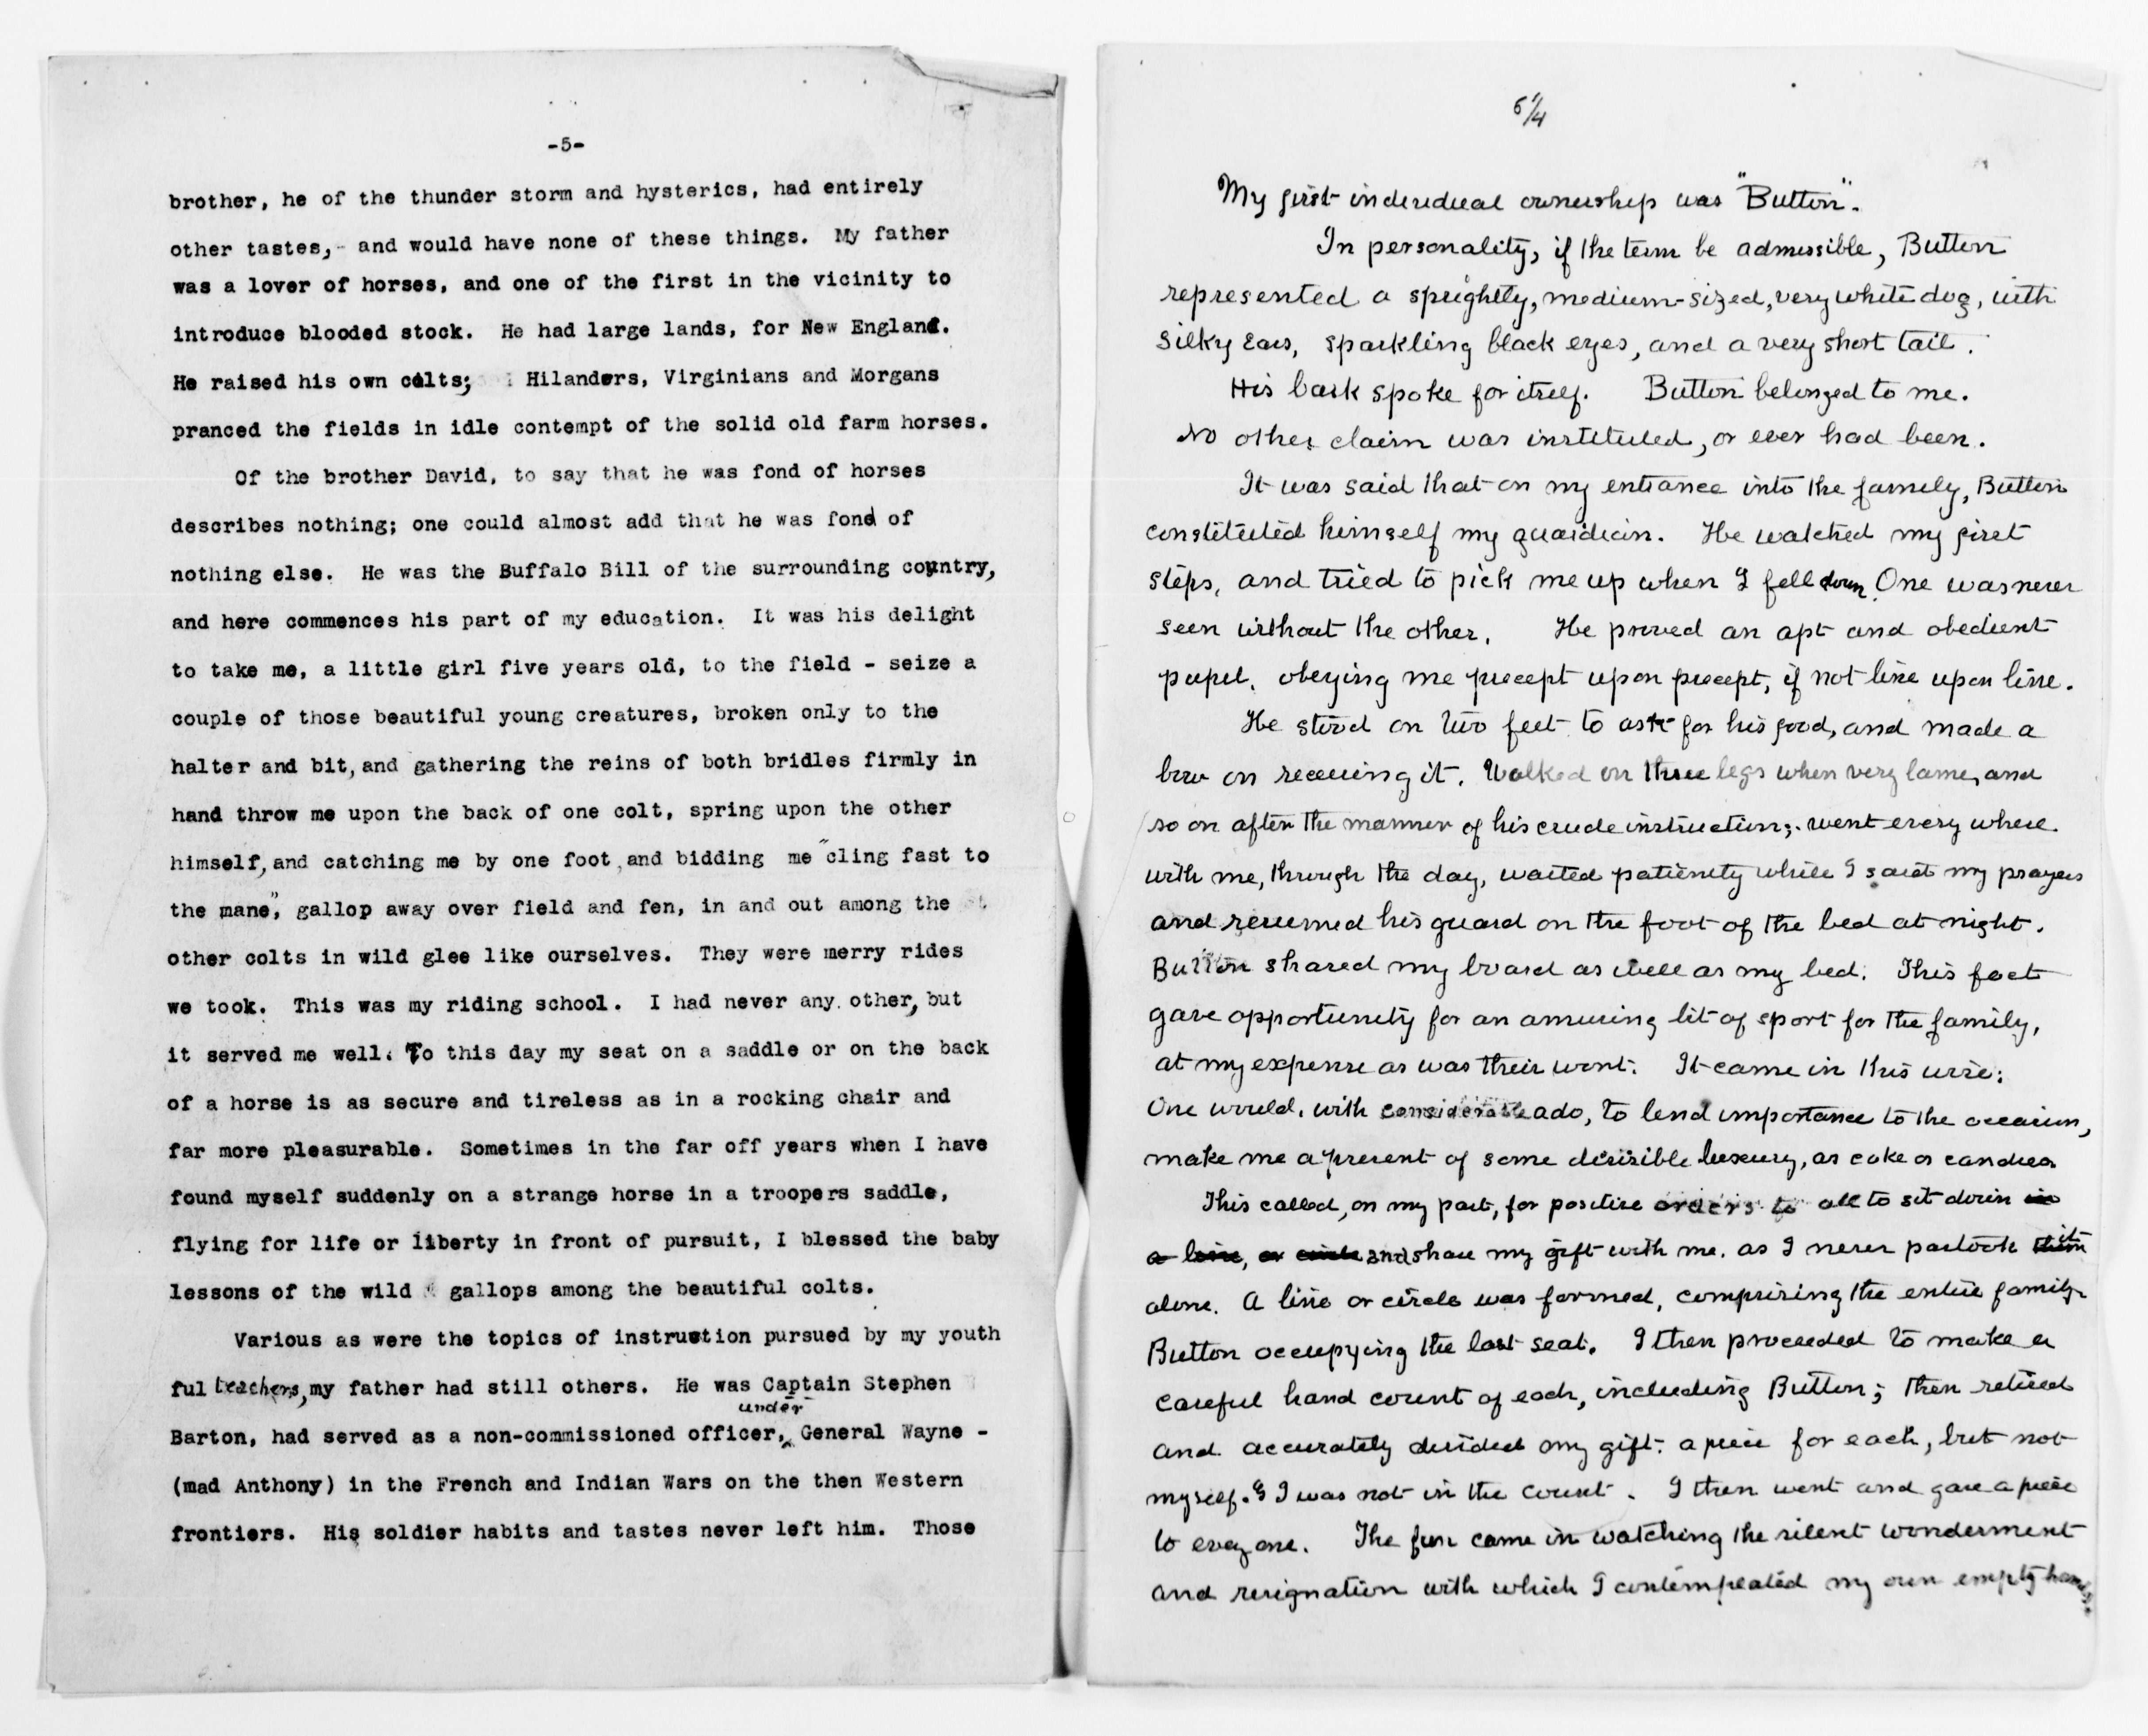 -5-
brother, he of the thunder storm and hysterics, had entirely
other tastes,- and would have none of these things. My father
was a lover of horses, and one of the first in the vicinity to
introduce blooded stock. He had large lands, for New England.
He raised his own colts; Hilanders, Virginians and Morgans
pranced the fields in idle contempt of the solid old farm horses.
Of the brother David, to say that he was fond of horses
describes nothing; one could almost add that he was fond of
nothing else. He was the Buffalo Bill of the surrounding country,
and here commences his part of my education. It was his delight
to take me, a little girl five years old, to the field - seize a
couple of those beautiful young creatures, broken only to the
halter and bit, and gathering the reins of both bridles firmly in
hand throw me upon the back of one colt, spring upon the other
himself, and catching me by one foot, and bidding me "cling fast to
the mane", gallop away over field and fen, in and out among the
other colts in wild glee like ourselves. They were merry rides
we took. This was my riding school. I had never any other, but
it served me well. To this day my seat on a saddle or on the back
of a horse is as secure and tireless as in a rocking chair and
far more pleasurable. Sometimes in the far off years when I have
found myself suddenly on a strange horse in a troopers saddle,
flying for life or liberty in front of pursuit, I blessed the baby
lessons of the wild gallops among the beautiful colts.
Various as were the topics of instruction pursued by my youth
ful teachers, my father had still others. He was Captain Stephen
under
Barton, had served as a non-commissioned officer, General Wayne -
(mad Anthony) in the French and Indian Wars on the then Western
frontiers. His soldier habits and tastes never left him. Those
5 1/4
My first individual ownership was "Button".
In personality, if the term be admissible, Button
represented a sprightly, medium-sized, very white dog, with
silky ears, sparkling black eyes, and a very short tail.
His bark spoke for itself. Button belonged to me.
No other claim was instituted, or ever had been.
It was said that on my entrance into the family, Button
constituted himself my guardian. He watched my first
steps, and tried to pick me up when I fell down. One was never
seen without the other. He proved an apt and obedient
pupil, obeying me precept upon precept, if not line upon line.
He stood on two feet to ask for his food, and made a
bow on receiving it. Walked on three legs when very lame, and
so on after the manner of his crude instruction; went every where
with me, through the day, waited patiently while I said my prayers
and resumed his guard on the foot of the bed at night.
Button shared my board as well as my bed. This fact
gave opportunity for an amusing bit of sport for the family,
at my expense as was their wont. It came in this wise:
One would, with considerable ado, to lend importance to the occasion,
make me a present of some desirible luxury, as cake or candies
This called, on my part, for positive orders to all to sit down in
a line, or circle and share my gift with me, as I never partook them it
alone. A line or circle was formed, comprising the entire family
Button occupying the last seat. I then proceeded to make a
careful hand count of each, including Button; then retired
and accurately divided my gift: a piece for each, but not
myself. I was not in the count. I then went and gave a piece
to every one. The fun came in watching the silent wonderment
and resignation with which I contemplated my own empty hands.